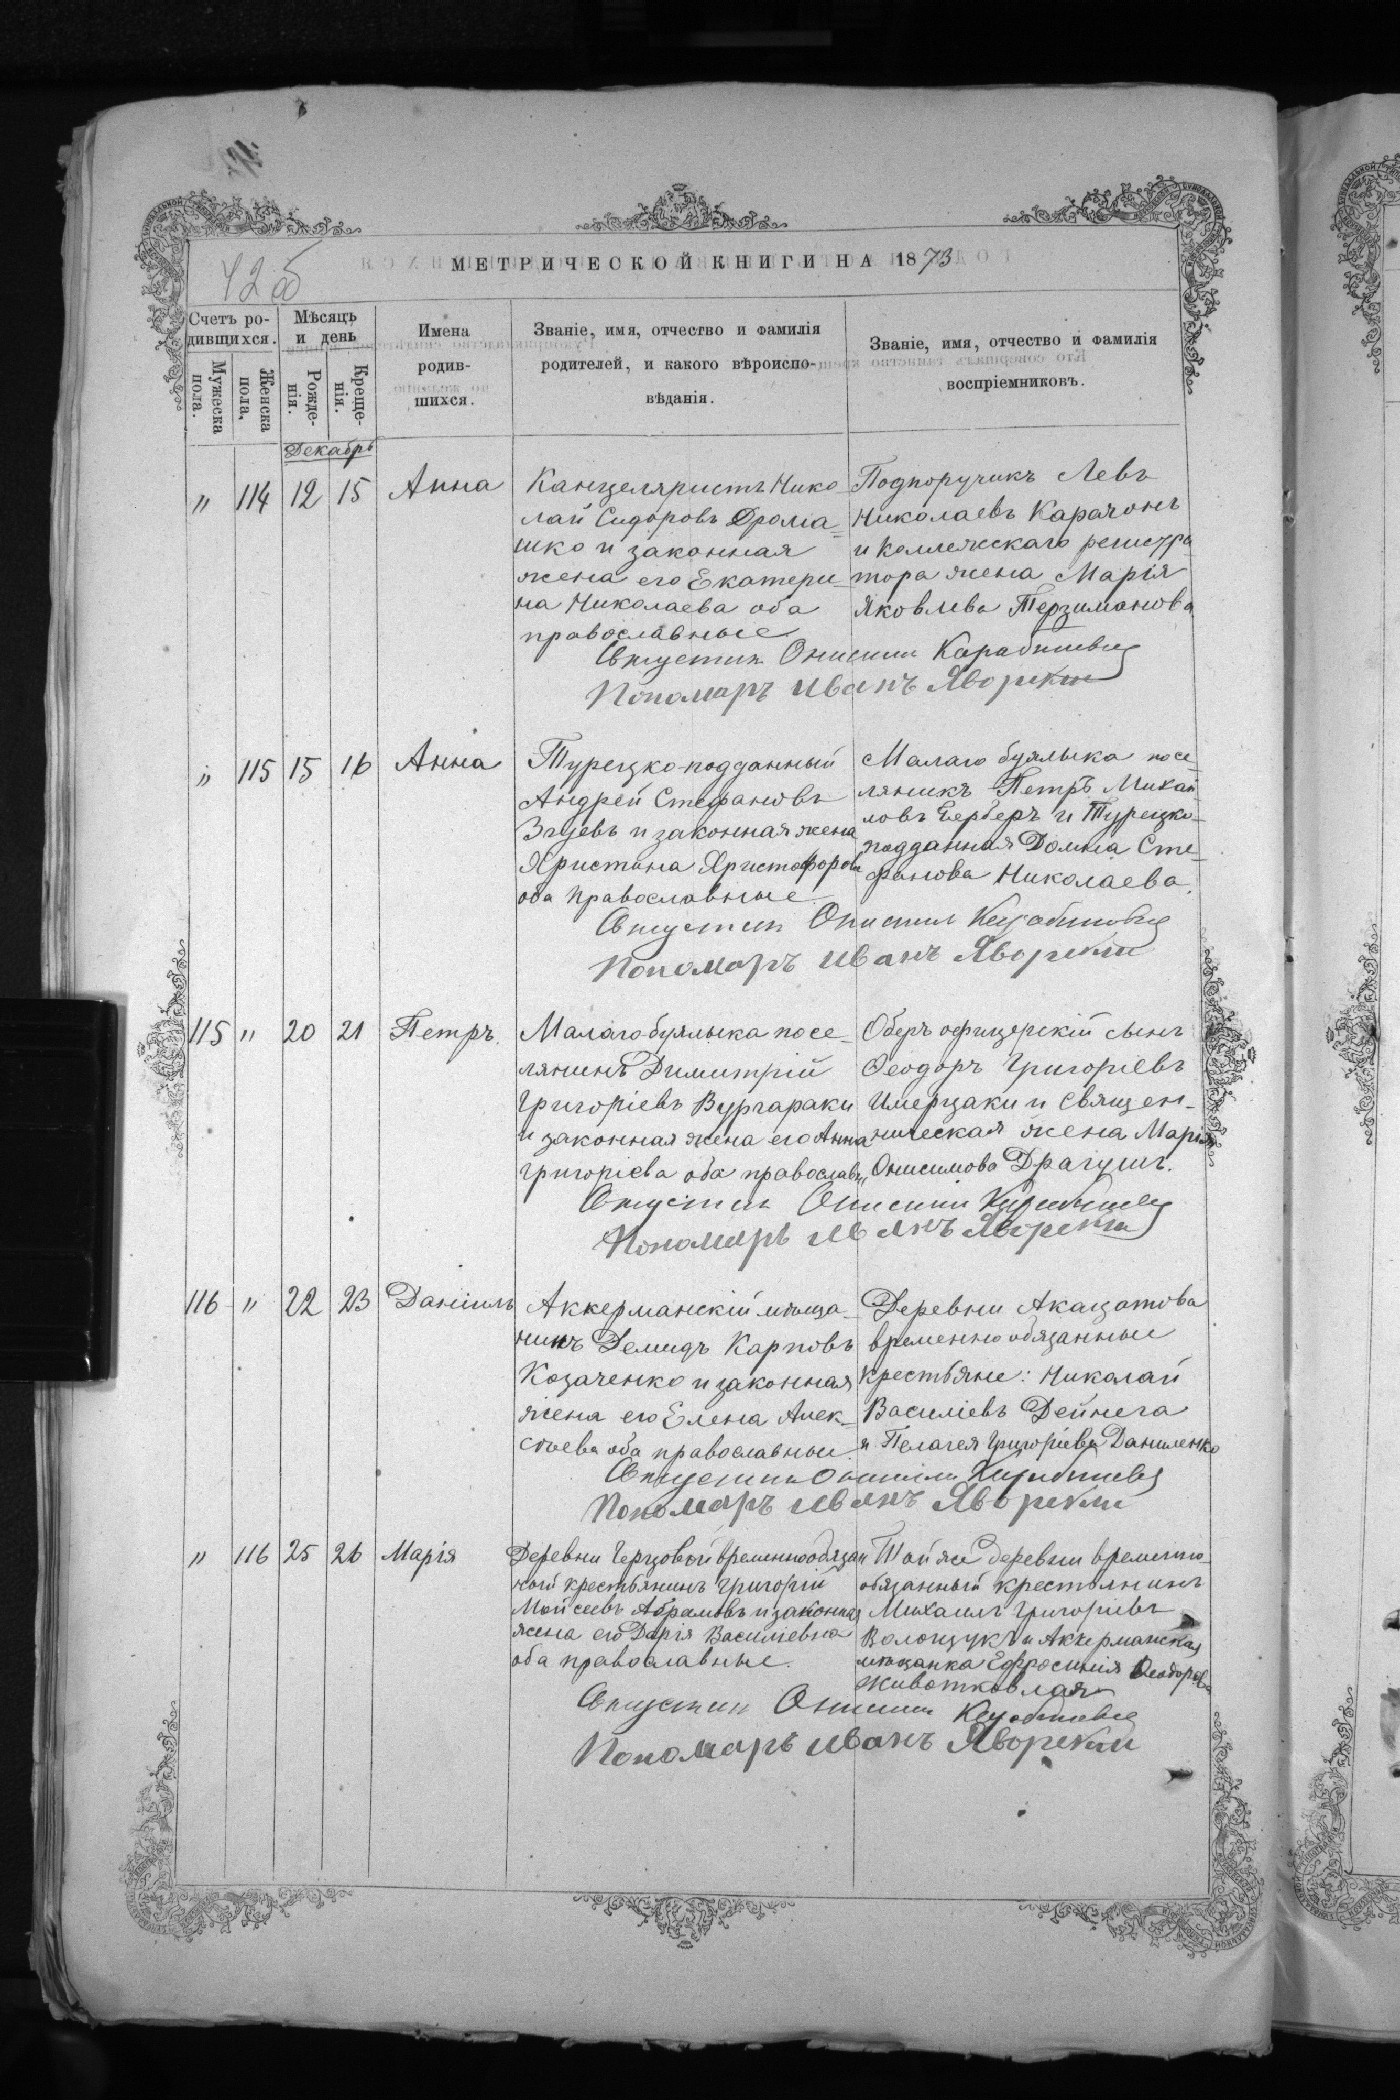 42об
МЕТРИЧЕСКОЙ КНИГИ НА 1873
Счетъ ро-
дившихся.
Мужеска
пола.
Женска
пола.
Мѣсяцъ
и день
Рожде-
нія.
Креще-
нія.
Имена
родив-
шихся.
Званіе, имя, отчество и фамилія
родителей, и какого вѣроиспо-
вѣданія.
Званіе, имя, отчество и фамилія
воспріемниковъ.
Декабрь
" 114 12 15 Анна
Канцеляристъ Нико-
лай Сидоровъ Дрома-
шко и законная
жена его Екатери-
на Николаева оба
православные
Подпоручикъ Левъ
Николаевъ Карачонъ
и Коллежскаго регистра
тора жена Марія
Яковлева Терзиманова.
Онисим
Пономарь Иванъ Яворски
" 115 15 16 Анна
Турецко-подданный
Андрей Стефановъ
и законная жена
Христина Христофорова
оба православные.
Малаго буялыка посе-
лянинъ Петръ Михай-
ловъ Берберъ и Турецко-
подданная Домна Сте-
фанова Николаева.
Онисим
Пономарь Иванъ Яворски
115 " 20 21 Петръ.
Малаго буялыка посе-
лянинъ Димитрій
Григоріевъ Вургараки
и законная жена его Анна
Григоріева оба православн.
Оберъ офицерскій сынъ
Ѳеодоръ Григоріевъ
Имерцаки и Священ-
ническая жена Марія
Онисимова Драгушъ.
Онисим
Пономарь Иванъ Яворски
116 " 22 23 Даніилъ
Аккерманскій мѣща-
нинъ Демидъ Карповъ
Козаченко и законная
жена его Елена Алек-
сѣева оба православные.
Деревни Акацатова
временно обязанные
крестьяне: Николай
Василіевъ Дейнега
и Пелагея Григоріева Даниленко
Онисим
Пономарь Иванъ Яворски
" 116 25 26 Марія
Деревни временнообязан
ной крестьянинъ Григорій
Мойсеевъ Абрамовъ и законная
жена его Дарія Василіевна
оба православные.
Той же деревни временно-
обязанный крестьянинъ
Михаилъ Григоріевъ
Волощукъ и Аккерманская
мѣщанка Ефросинія Ѳеодорова
Животковлая
Онисим
Пономарь Иванъ Яворски